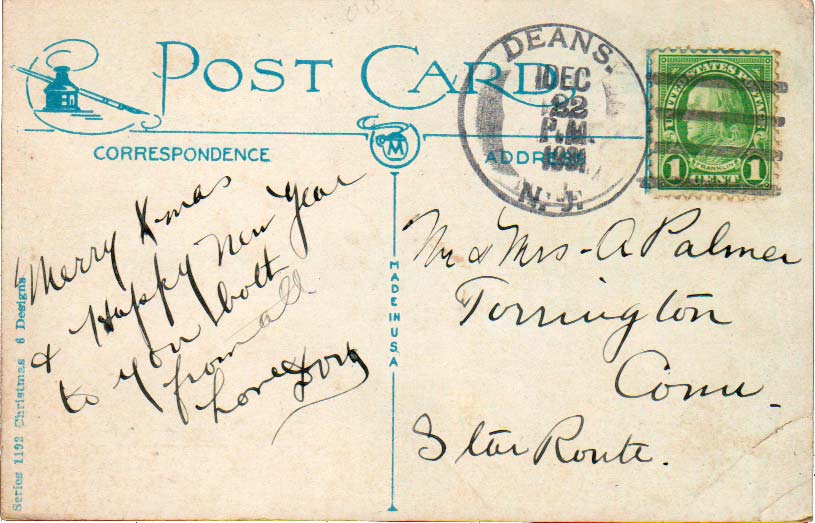 POST CARD
CORRESPONDENCE
ADDRESS
M
DEANS.
DEC
22
P.M.
1931
N. J.
UNITED STATES POSTAGE
FRANKLIN
1 CENT 1
Merry Xmas
& Happy New Year
to you bott
from all
Love
Mr & Mrs - A Palmer
Torrington
Conn.
Star Route.
MADE IN U.S.A
Series 1192 Christmas 6 Designs